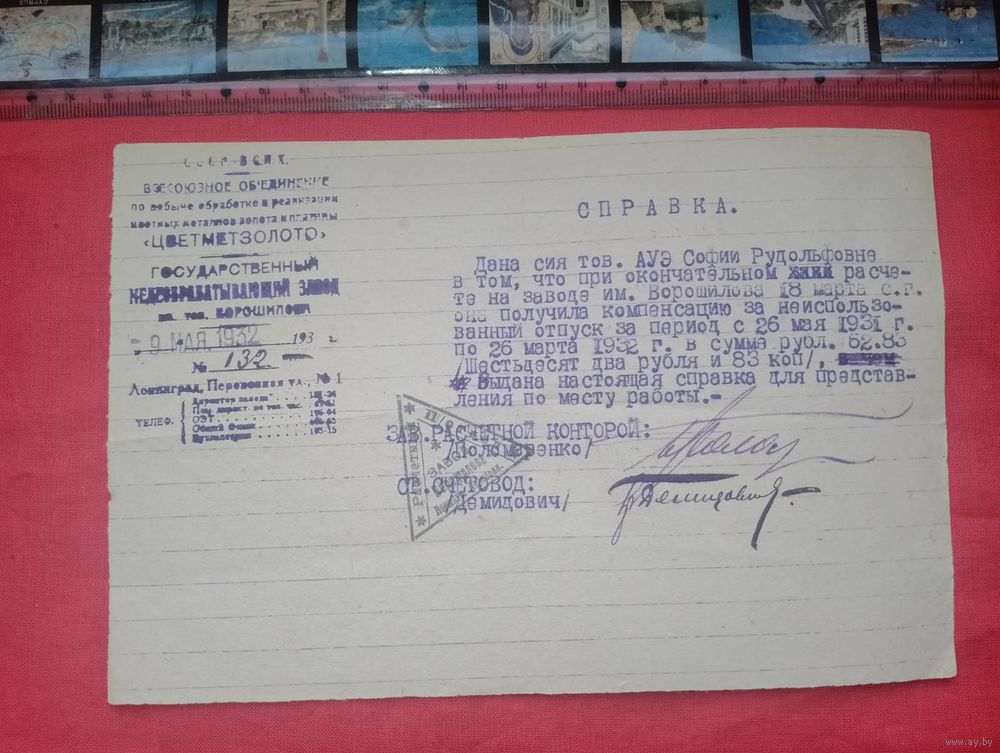 CYPRUS
С.С.С.Р. В.С.Н.Х.
ВСЕСОЮЗНОЕ ОБЪЕДИНЕНИЕ
по добыче обработке и реализации
цветных металлов золота и платины
«ЦВЕТМЕТЗОЛОТО»
ГОСУДАРСТВЕННЫЙ
МЕДЕОБРАБАТЫВАЮЩИЙ ЗАВОД
им. тов. ВОРОШИЛОВА
9 МАЯ 1932 193 г.
№ 132.
Ленинград, Перевозная ул., № 1
ТЕЛЕФ.
Директор завода
Пом. директ. по тех. час.
ОЭТ
Общий отдел
Бухгалтерия
СПРАВКА.
Дана сия тов. АУЭ Софии Рудольфовне
в том, что при окончательном расче-
те на заводе им. Ворошилова 18 марта с.г.
она получила компенсацию за неиспользо-
ванный отпуск за период с 26 мая 1931 г.
по 26 марта 1932 г. в сумме рубл. 62.83
/Шестьдесят два рубля и 83 коп/,
Выдана настоящая справка для представ-
ления по месту работы.-
ЗАВ.РАСЧЕТНОЙ КОНТОРОЙ:
/Поломаренко/
СТ.СЧЕТОВОД:
/Демидович/
Демидович
ЗАВОД
www.ay.by